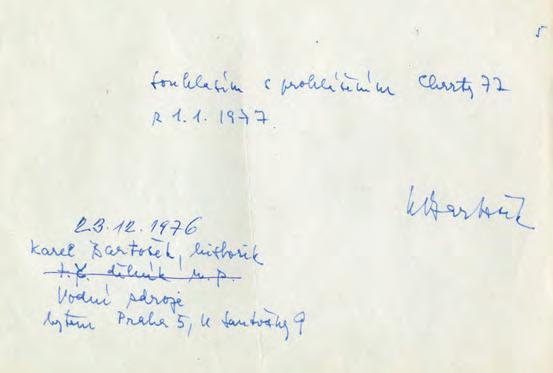 5
Souhlasím s prohlášením Charty 77
z 1.1.1977.
KBartošek
23.12.1976
Karel Bartošek, historik
t.č. dělník n.p.
Vodní zdroje
bytem Praha 5, U Santošky 9